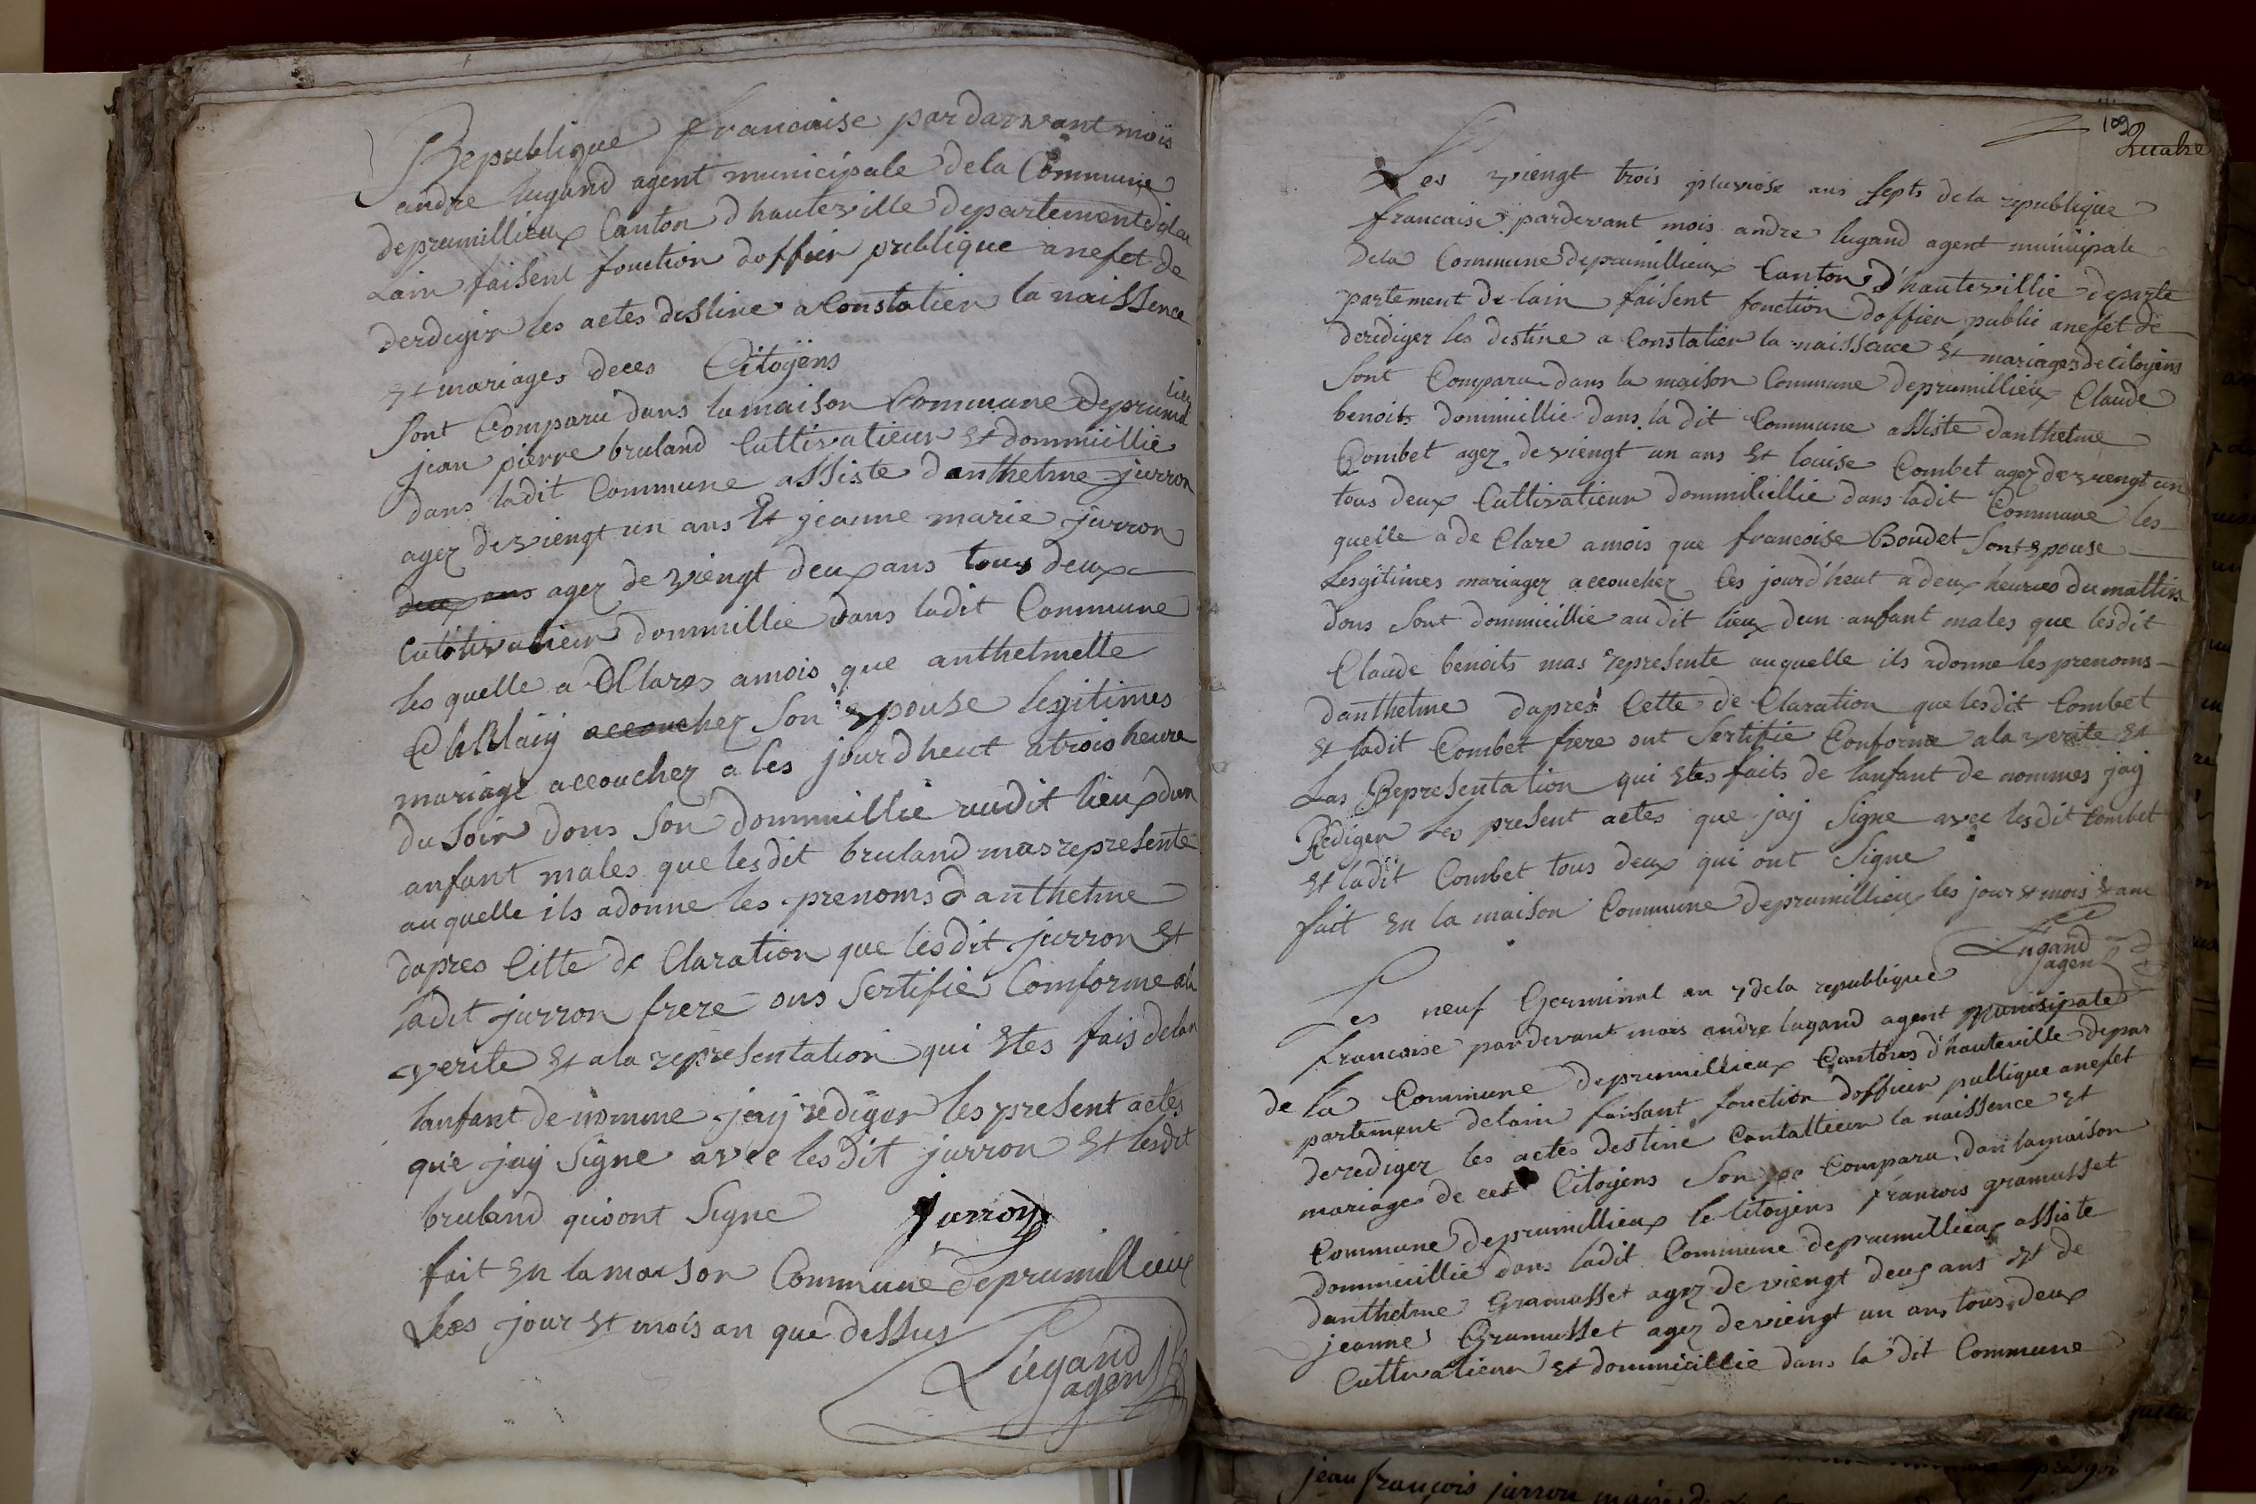 Republique francaise pardarvant mois
andre lugand agent municipale dela Commune
deprumillieux Canton d hauteville departement de
Lain faisent fonction doffier publique anefet de
derdegir les actes destine a Constatier la naissence
et mariages deces Citoÿens
sont Comparu dans lamaison Commune deprumillieu
jean pierre bruland Cultivatieur et dommiellie
dans ladit Commune assiste danthelme jurron
agez deviengt un ans Et jeanne marie jurron
deux ans agez de viengt deux ans tous deux
Cultivatieur dommillie dans ladit Commune
les quelle a dClarez amois que anthelmelle
accouchez son epouse legitimes
mariage accouchez a les jourdheut a trois heure
du soir dons son dommillie audit lieux dun
anfant males que lesdit bruland mas represente
auquelle ils adonne les prenoms danthelme
dapres Citte de Claration que lesdit jurron et
ladit jurron frere ons sertifie Comforme ala
verite et ala representation qui Etes fais delan
lanfant de nomme jaij rediger les present actes
que jaij signe avec lesdit jurron et lesdit
bruland quiont signe jurron
fait en lamaison Commune deprumillieux
Les jour et mois an que dessus
Lugand
agent
109
Quatre
Les viengt trois pluviose ans septs dela republique
francaise pardevant mois andre lugand agent municipale
dela Commune deprumillieux Canton d'hautevillie departe
partement de lain faisent fonction doffier public anefet de
derediger les destine a Constatier la naissance et mariages de citoyens
sont Comparu dans la maison Commune deprumillieux Claude
benoits dommicillie dans la dit Commune assiste danthelme
Combet agez de viengt un ans et louise Combet agez de viengt un
tous deux Cultivatieur dommiliellie dans ladit Commune les
quelle a de Clare amois que francoise Goudet sont epouse
Lesgitimes mariagez accouchez les jourd'heut a deux heures du mattin
dons sont dommicillie au dit lieux dun anfant males que lesdit
Claude benoits mas represente auquelle ils adonne les prenoms
danthelme dapres Cette de Claration que lesdit Combet
et ladit Combet frere ont sertifie Conforme ala verite et
Las Representation qui Etes faits de lanfant de nommes jaij
Rediger les present actes que jaij signe avec lesdit Combet
et ladit Combet tous deux qui ont signe
fait en la maison Commune deprumillieux les jour et mois et ans
Lugand
agent
Les neuf Germinal an 7 dela republique
francaise pardevant mois andre lugand agent municipale
de la Commune deprumillieux Cantons d'hauteville depar
partement delain faisant fonction dofficier publique anefet
derediger les actes destine Contattieur la naissence et
mariages de ces Citoyens son Comparu dan lamaison
Commune deprumillieux le Citoyens francois gramusset
dommicillie dans ladit Commune deprumillieux assiste
danthelme Gramusset agez de viengt deux ans et de
jeanne Gramusset agez deviengt un ans tous deux
Cultivatieur et dommicillie dans la dit Commune
jean françois jurron maire